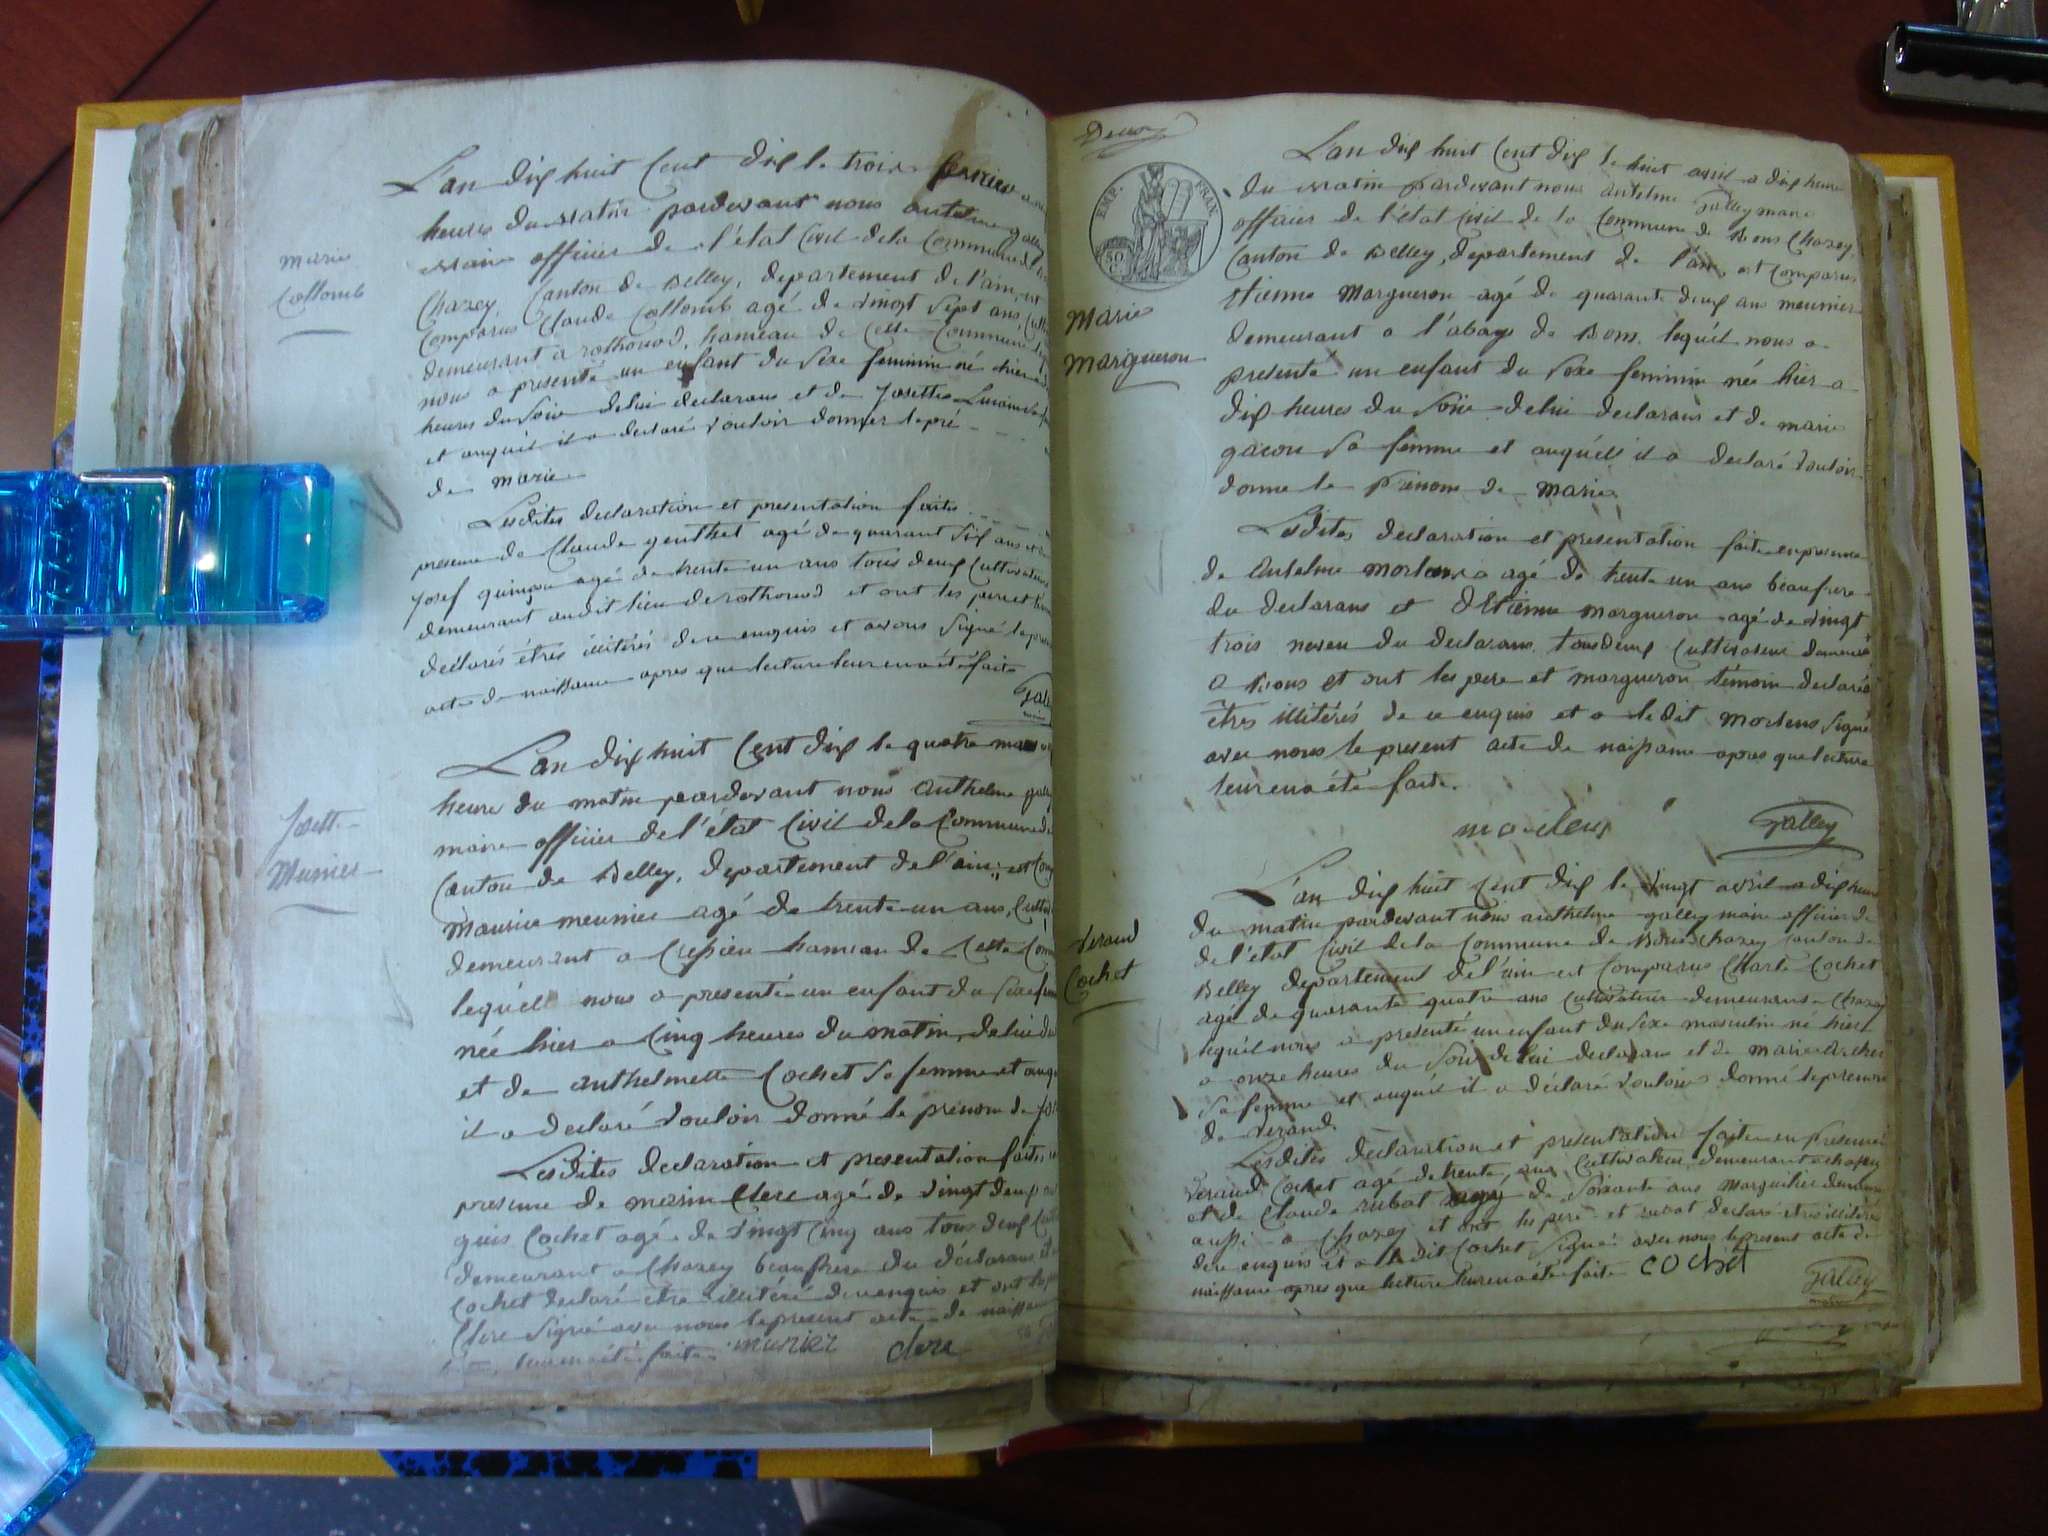 L'an dix huit Cent dix le trois fevrier
heures du matin pardevant nous antelme
maire officier de l'état Civil dela Commune
marie
Collomb
Chazey, Canton de Belley, departement de l'ain, est
Comparus Claude Collomb agé de vingt sept ans,
demeurant a rothonod, hameau de Cette Commune
nous a presenté un enfant du sexe feminin né hier
heures du soir delui declarans et de Josette
et auquel il a declaré vouloir donner le pré
de marie
Lesdites declaration et presentation faites
presence de Claude genthet agé de quarant six ans
Josef quinson agé de trente un ans tous deux Cultivateurs
demeurant audit lieu de rothonod et ont les pere et
declarés êtres illitérés de ce enquis et avons signé le
acte de naissance apres que lecture leur en a été faite
L'an dix huit Cent dix le quatre mars
heure du matin pardevant nous anthelme
maire officier de l'état Civil dela Commune de
Josette
Munier
Canton de Belley, departement de l'ain, est
Maurice meunier agé de trente un ans,
demeurant a Cressieu hameau de Cette
lequel nous a presenté un enfant du sexe
née hier a Cinq heures du matin, de lui
et de anthelmette Cochet sa femme et
il a declaré vouloir donné le prenom de
Lesdites declaration et presentation faites
presence de marin Clerc agé de vingt deux
Cochet agé de vingt Cinq ans tous deux
demeurant a Chazey beaufrere du déclarans
Cochet declaré etre illitéré de ce enquis et ont
Clerc signé avec nous le present acte de naissance
leur en a été faite munier clerc
EMP. FRAN.
50 C.
L'an dix huit Cent dix le huit avril a dix heure
du matin pardevant nous antelme Galley maire
officier de l'état Civil de la Commune de Bons Chazey,
Canton de Belley, departement de l'ain, est Comparus
Marie
Margueron
Etienne Margueron agé de quarante deux ans meunier
demeurant a l'abaye de Bons. lequel nous a
presenté un enfant du sexe feminin née hier a
dix heures du soir delui declarans et de marie
gacon sa femme et auquell il a declaré vouloir
donne le Prenom de Marie.
Lesdites declaration et presentation faite en presence
de Antelme agé de trente un ans beaufrere
du declarans et d'Etienne margueron agé de vingt
trois neveu du declarans, tous deux Cultivateur demeurs
a et ont les pere et margueron témoin declaré
êtres illitérés de ce enquis et a ledit signé
avec nous le present acte de naissance apres que lecture
leur en a été faite.
Galley
L'an dix huit Cent dix le vingt avril a dix heure
du matin pardevant nous anthelme galley maire officier de
de l'état Civil dela Commune de Bons Chazey Canton de
Verand
Cochet
Belley departement de l'ain est Comparus Cochet
agé de quarante quatre ans Cultivateur demeurans a Chazey
lequel nous a presenté un enfant du sexe masculin né hier
a onze heures du soir de lui declarans et de marie
sa femme et auquel il a déclaré vouloir donné le prenom
de Verand.
Lesdites declaration et presentation faite en presence
Verand Cochet agé de trente ans Cultivateur demeurant a chazey
et de Claude rubat agé de soixante ans marguilier
aussi a Chazey et ont les pere et rubat declaré etres illitérés
de ce enquis et a le dit Cochet signé avec nous le present acte de
naissance apres que lecture leur en a été faite COCHET
Galley